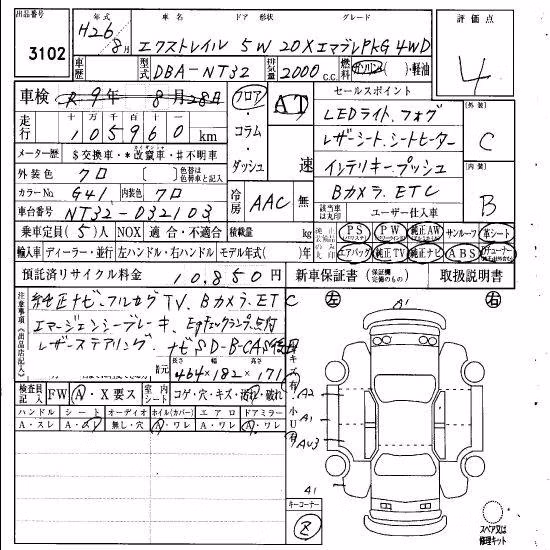 出品番号 3102
年式 H26/8月
車名 エクストレイル
ドア 形状 5W
グレード 20XエマブレPkG 4WD
評価点 4
車歴
型式 DBA-NT32
排気量 2000 c.c.
燃料 ガソリン ( )・軽油
車検 R9年 8月28日
フロア・コラム・ダッシュ
AT 速
セールスポイント
LEDライト、フォグ
レザーシート、シートヒーター
インテリキー、プッシュ
Bカメラ、ETC
外装 C
内装 B
走行 十万 万 千 百 十 一
105960 km
メーター歴 $交換車・*改竄車・#不明車
外装色 クロ [ ] 色替は色替車と記入
カラーNo. G41 内装色 クロ
冷房 AAC 無
車台番号 NT32-032103
該当車は丸印 ユーザー仕入車
乗車定員 (5)人 NOX 適合・不適合 積載量 kg
純正装備品のみ丸印 PS PW 純正AW サンルーフ 革シート
輸入車 ディーラー・並行 左ハンドル・右ハンドル モデル年式( )年
エアバッグ 純正TV 純正ナビ ABS
預託済リサイクル料金 10,850円
新車保証書 (保証欄完備のもの) 取扱説明書
注意事項(出品店記入)
純正ナビ、フルセグTV、Bカメラ、ETC
エマージェンシーブレーキ、Egチェックランプ点灯
レザーステアリング、ナビSD-B-CAS後日
諸元 長さ 幅 高さ
464×182×171
左 右
A1
キズ有 小 U
A2
A1
AU3
A1
検査員記入 FW A・X要ス
室内シート コゲ・穴・キズ・汚れ・破れ
ハンドル シート オーディオ ホイル(カバー) エアロ ドアミラー
A・スレ A・スレ 無し・穴 A・ワレ A・ワレ A・ワレ
キーコーナー
スペア又は修理キット